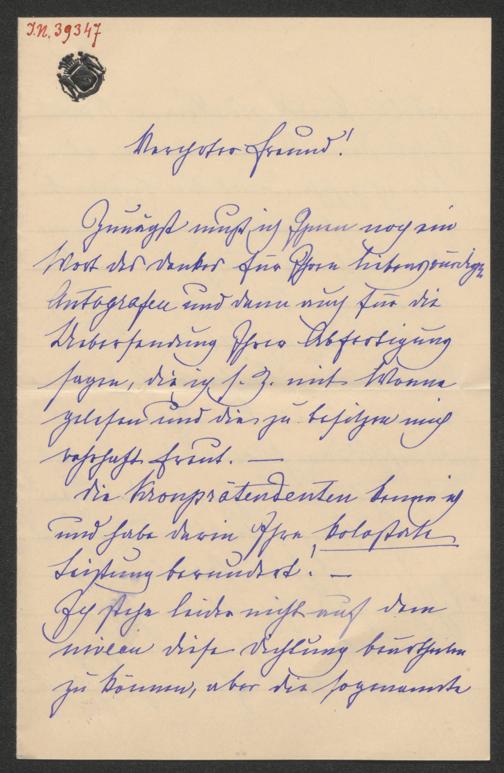 J.N. 39347
Verehrter Freund!
Zunächst muß ich Ihnen noch ein
Wort des Dankes für Ihren liebenswürdigen
Autografen und dann auch für die
Uebersendung Ihrer Abfertigung
sagen, die ich s. Z. mit Wonne
gelesen und die zu besitzen mich
wahrhaft freut. —
Die Kronprätendenten kenne ich
und habe darin Ihre kolossale
Leistung bewundert! —
Ich stehe leider nicht auf dem
niveau diese Dichtung beurtheilen
zu können, aber die sogenannte